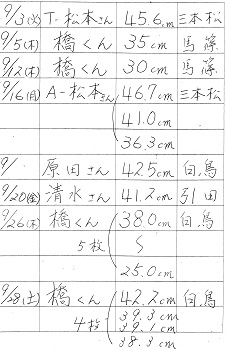 9/3(火) T-松本さん 45.6cm 三本松
9/5(木) 橋くん 35cm 馬篠
9/12(木) 橋くん 30cm 馬篠
9/16(月) A-松本さん 46.7cm 三本松
41.0cm
36.3cm
9/ 原田さん 42.5cm 白鳥
9/20(金) 清水さん 41.2cm 引田
9/26(木) 橋くん 38.0cm 白鳥
5枚 〜
25.0cm
9/28(土) 橋くん 42.2cm 白鳥
4枚 39.3cm
39.1cm
38.3cm